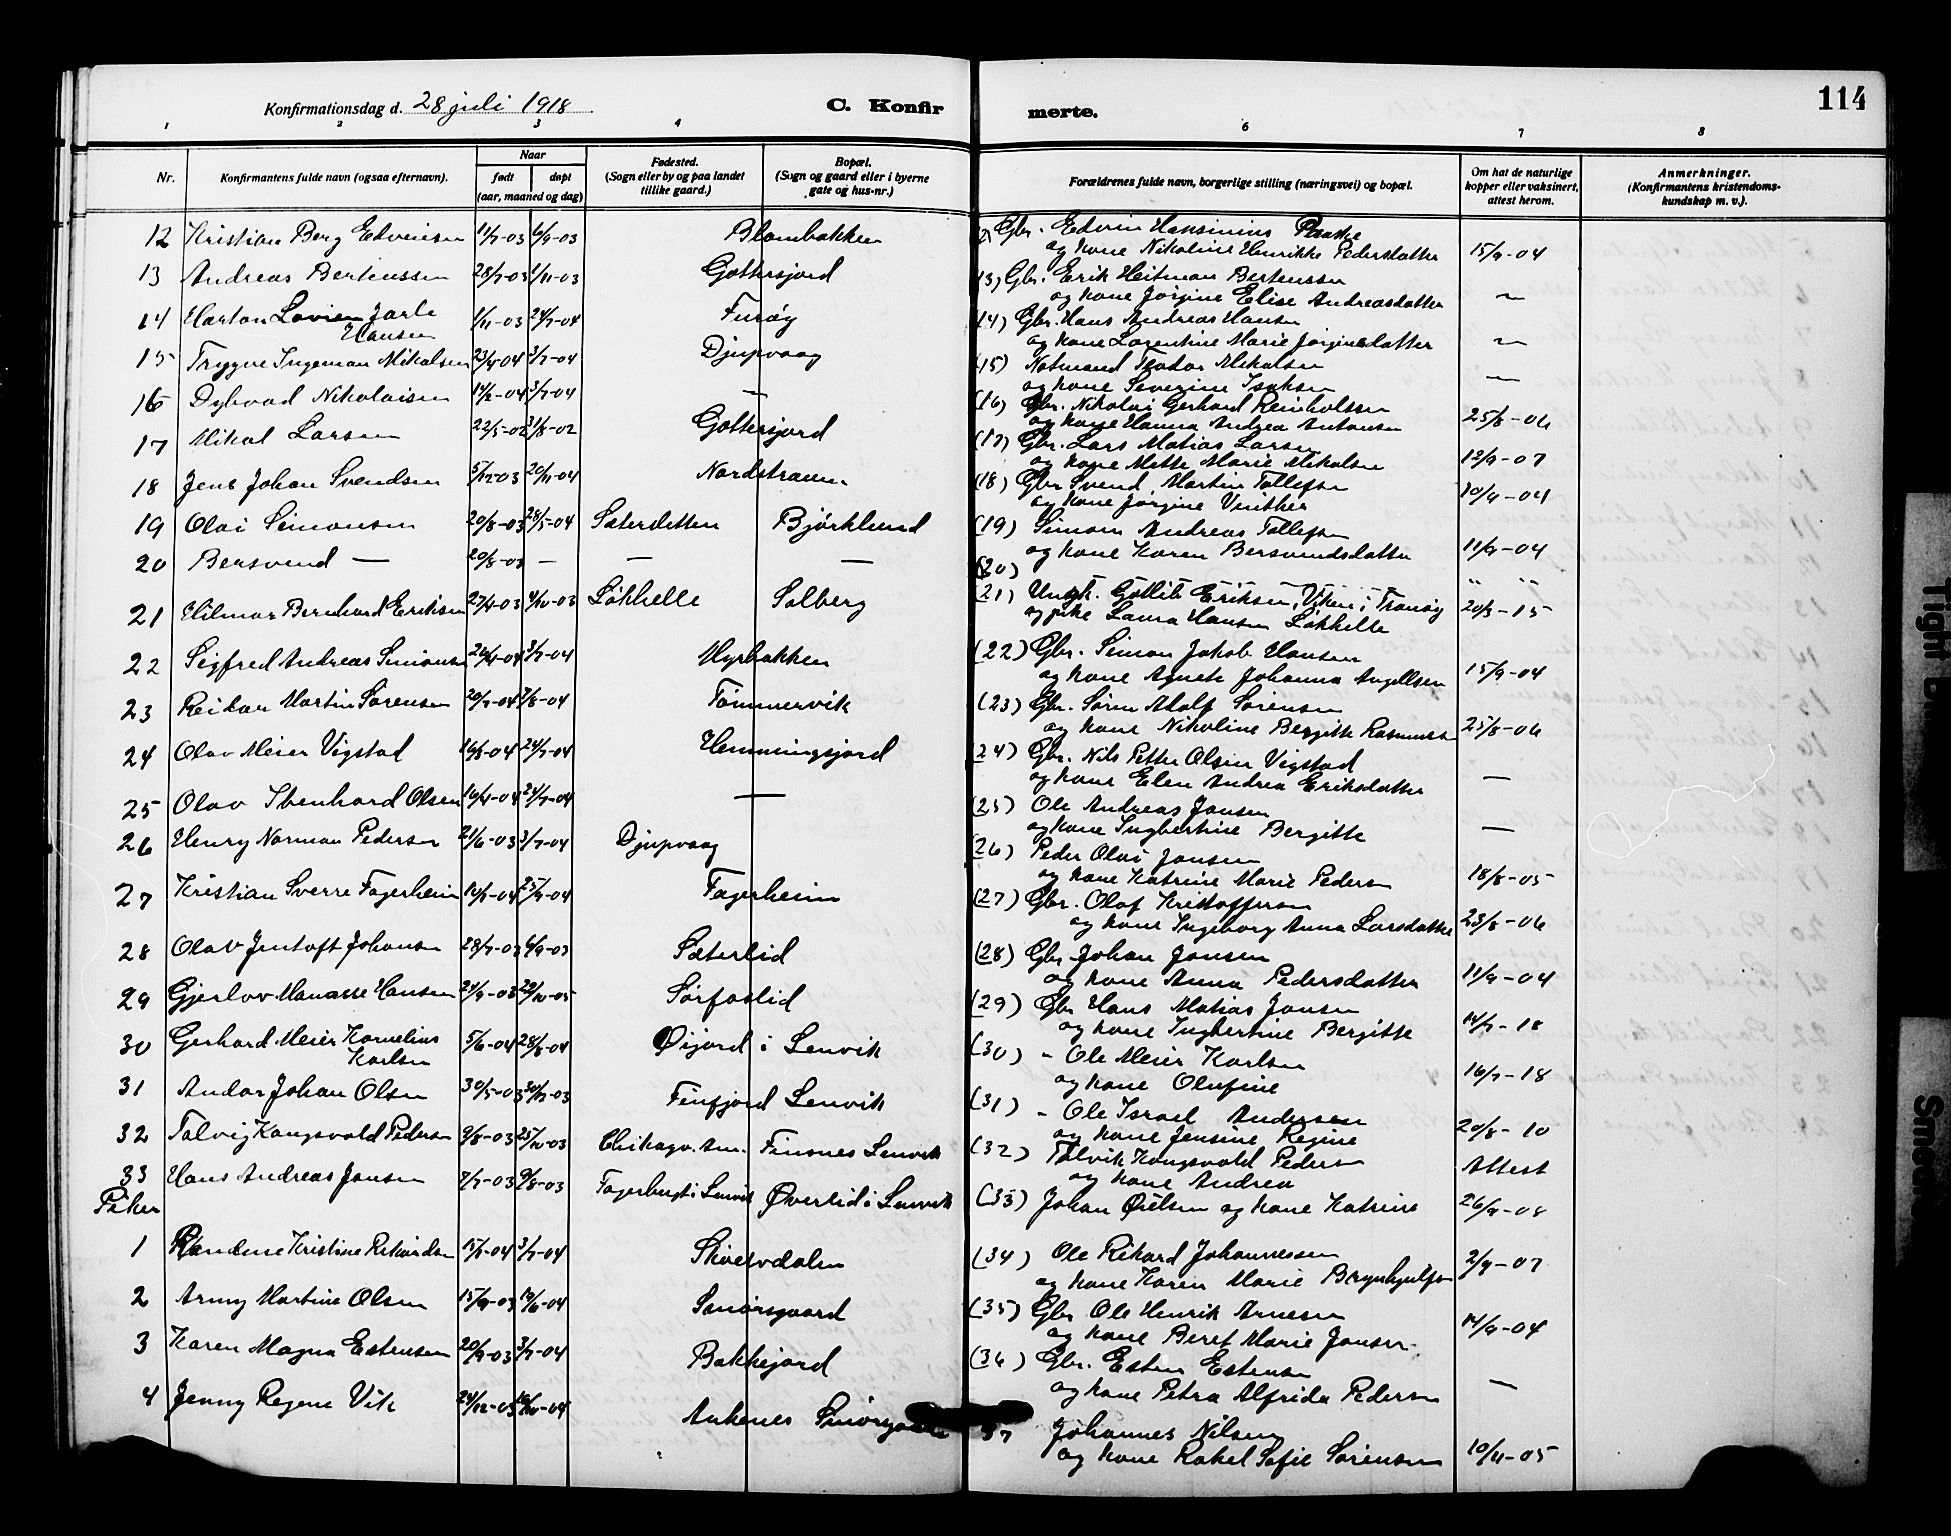 114
Konfirmationsdag d. 28 juli 1918
C. Konfirmerte.
1 2 3 4 6 7 8
Nr.
Konfirmantens fulde navn (ogsaa efternavn).
Naar
født
døpt
(aar, maaned og dag)
Fødested.
(Sogn eller by og paa landet
tillike gaard.)
Bopæl.
(Sogn og gaard eller i byerne
gate og hus-nr.)
Forældrenes fulde navn, borgerlige stilling (næringsvei) og bopæl.
Om hat de naturlige
kopper eller vaksinert,
attest herom.
Anmerkninger.
(Konfirmantens kristendoms-
kundskap m. v.).
12 Kristian Berg Edvinsen 11/7-03 6/9-03 Blombakken Gbr. Edvin Hansinius
og kone Nikoline Henrikke Pedersdatter 15/9-04
13 Andreas Bertinussen 28/7-03 1/11-03 Gottesjord (13) Gbr. Erik Heitman Bertinussen
og kone Jørgine Elise Andreasdatter —
14 Harton Lovien Jarle 1/11-03 24/7-04 Furøy (14) Gbr. Hans Andreas Hansen
Hansen og kone Lorentine Marie Jørginedatter —
15 Trygve Ingeman Mikalsen 23/4-04 3/7-04 Djupvaag (15) Notmand Teodor Mikalsen
og kone Severine Isaksen —
16 Dybvad Nikolaisen 14/2-04 3/7-04 — (16) Gbr. Nikolai Gerhard Reinholtsen
og kone Hanna Andrea Antonsen 25/8-06
17 Mikal Larsen 22/5-02 31/8-02 Gottesjord (17) Gbr. Lars Matias Larsen
og kone Mette Marie Mikalsen 12/9-07
18 Jens Johan Svendsen 5/12-03 20/11-04 Nordstraum (18) Gbr Svend Martin Tollefsen
og kone Jørgine Vinther 10/9-04
19 Olai Simonsen 20/8-03 28/5-04 Sæterdetten Bjørklund (19) Simon Andreas Tollefsen
og kone Karen Bersvendsdatter 11/9-04
20 Bersvend — 20/8-03 — — — (20)
21 Hilmar Bernhard Eriksen 27/4-03 4/10-03 Løkhelle Solberg (21) Ungk. Gotlib Eriksen, Viken i Tranøy
og pike Laura Hansen Løkhelle 20/3-15
22 Sigfred Andreas Simonsen 26/4-04 3/7-04 Myrbakken (22) Gbr. Simon Jakob Hansen
og kone Agnete Johanna Angellsen 15/9-04
23 Reidar Martin Sørensen 20/7-04 7/8-04 Tømmervik (23) Gbr. Søren Adolf Sørensen
og kone Nikoline Bergitte Rasmussen 25/8-06
24 Olav Meier Vigstad 24/7-04 Hemmingsjord (24) Gbr. Nils Petter Olsen Vigstad
og kone Elen Andrea Eriksdatter —
25 Olav Ibenhard Olsen 16/4-04 24/7-04 — (25) Ole Andreas Jansen
og kone Ingbertine Bergitte —
26 Henry Norman Pedersen 21/6-03 3/7-04 Djupvaag (26) Peder Olai Jansen
og kone Katrine Marie Pedersen 18/8-05
27 Kristian Sverre Fagerheim Fagerheim (27) Gbr. Olaf Kristoffersen
og kone Ingeborg Anna Larsdatter 23/8-06
28 Olav Jentoft Johansen 28/7-03 6/9-03 Sæterlid (28) Gbr Johan Jansen
og kone Anna Pedersdatter 11/9-04
29 Gjerlov Manasse Hansen Sørfaslid (29) Gbr Hans Matias Jansen
og kone Ingbertine Bergitte 14/7-18
30 Gerhard Meier Kornelius 5/6-04 28/8-04 Øijord i Lenvik (30) - Ole Meier Karlsen
Karlsen og kone Olufine 16/7-18
31 Andor Johan Olsen 30/5-03 Finfjord Lenvik (31) - Ole Israel Andersen
og kone Jensine Regine 20/8-10
32 Tolvig Kongsvold Pedersen 9/8-03 25/10-03 Chikago. Am. Finsnes Lenvik (32) Tolvik Kongsvold Pedersen
og kone Andrea Attest
33 Hans Andreas Jansen 7/7-03 9/8-03 Fagerbugt i Lenvik Øverlid i Lenvik (33) Johan Øielsen og kone Katrine 26/9-08
Piker
1 Randine Kristine Rikardsen 3/7-04 (34) Ole Rikard Johannessen
og kone Karen Marie Brynhjulfsen 2/9-07
2 Arny Martine Olsen 15/9-03 19/6-04 Smørsgaard (35) Gbr Ole Henrik Arnesen
og kone Beret Marie Jansen 14/9-04
3 Karen Magna Estensen 20/9-03 3/7-04 Bakkejord (36) Gbr. Esten Estensen
og kone Petra Alfrida Pedersen —
4 Jenny Regine Vik Ankenes 37 Johannes Nilsen
og kone Rakel Sofie Sørensen 10/11-05